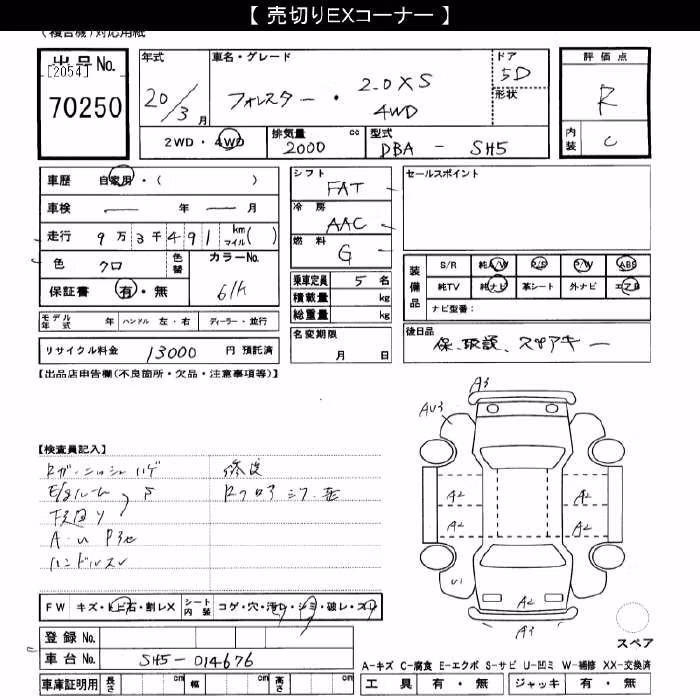 【 売切りEXコーナー 】
(複合機)対応用紙
出品No.
[2054]
70250
年式
20/3 月
車名・グレード
フォレスター ・ 2.0XS
4WD
ドア
5D
形状
評価点
R
内装
C
2WD ・ 4WD
排気量 cc
2000
型式
DBA - SH5
車歴 自家用・( )
車検 年 月
走行 9万3千491 km マイル( )
色 クロ
色替
カラーNo.
61K
保証書 有・無
モデル年式 年 ハンドル 左・右 ディーラー・並行
リサイクル料金 13000 円 預託済
シフト
FAT
冷房
AAC
燃料
G
乗車定員 5 名
積載量 kg
総重量 kg
名変期限
月 日
セールスポイント
装備品
S/R 純A/W P/S P/W ABS
純TV 純ナビ 革シート 外ナビ エアB
ナビ型番:
後日品
保、取説、スペアキー
【出品店申告欄(不良箇所・欠品・注意事項等)】
【検査員記入】
修復
ハンドルスレ
A3
AU3
A2
A2
A2
A2
U1
A2
A3
FW キズ・トビ石・割レX
シート内装 コゲ・穴・汚レ・シミ・破レ・スレ
登録 No.
車台 No. SH5-014676
車庫証明用 長さ cm 幅 cm 高さ cm
スペア
A-キズ C-腐食 E-エクボ S-サビ U-凹ミ W-補修 XX-交換済
工具 有・無 ジャッキ 有・無